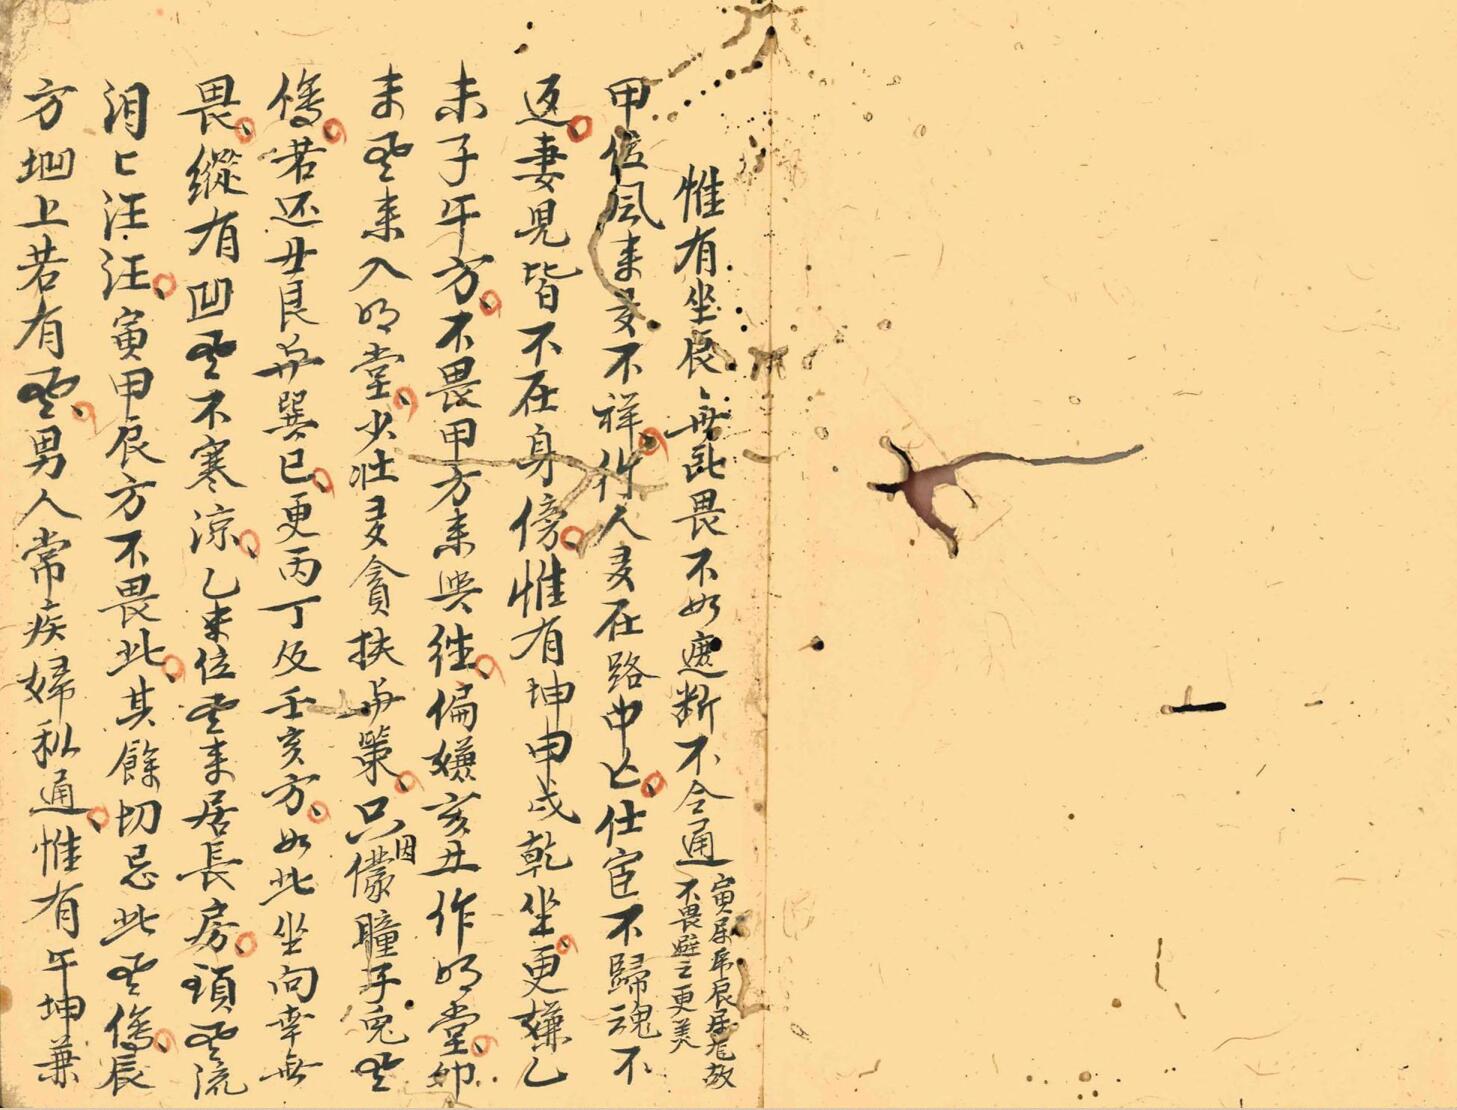 惟有坐辰、毋所畏不如遮斷不令通
寅屬虎辰屬龍故
不畏避之更美
甲位風來多不祥作人多在路中亡仕宦不歸魂不
返妻兒皆不在身傍惟有坤申戌乾坐更嫌乙
未子午方不畏甲方來與往偏嫌亥丑作明堂卯
未風來入明堂少壯多貪扶與策只因儂瞳子兒
傷若还丑艮与巽巳更丙丁及壬亥方如此坐向幸無
畏縱有凹風不寒涼乙未位風來居長房須風流
淚匕汪汪寅甲辰方不畏此其餘切忌此風傷辰
方堋上若有風男人常疾婦私通惟有午坤兼